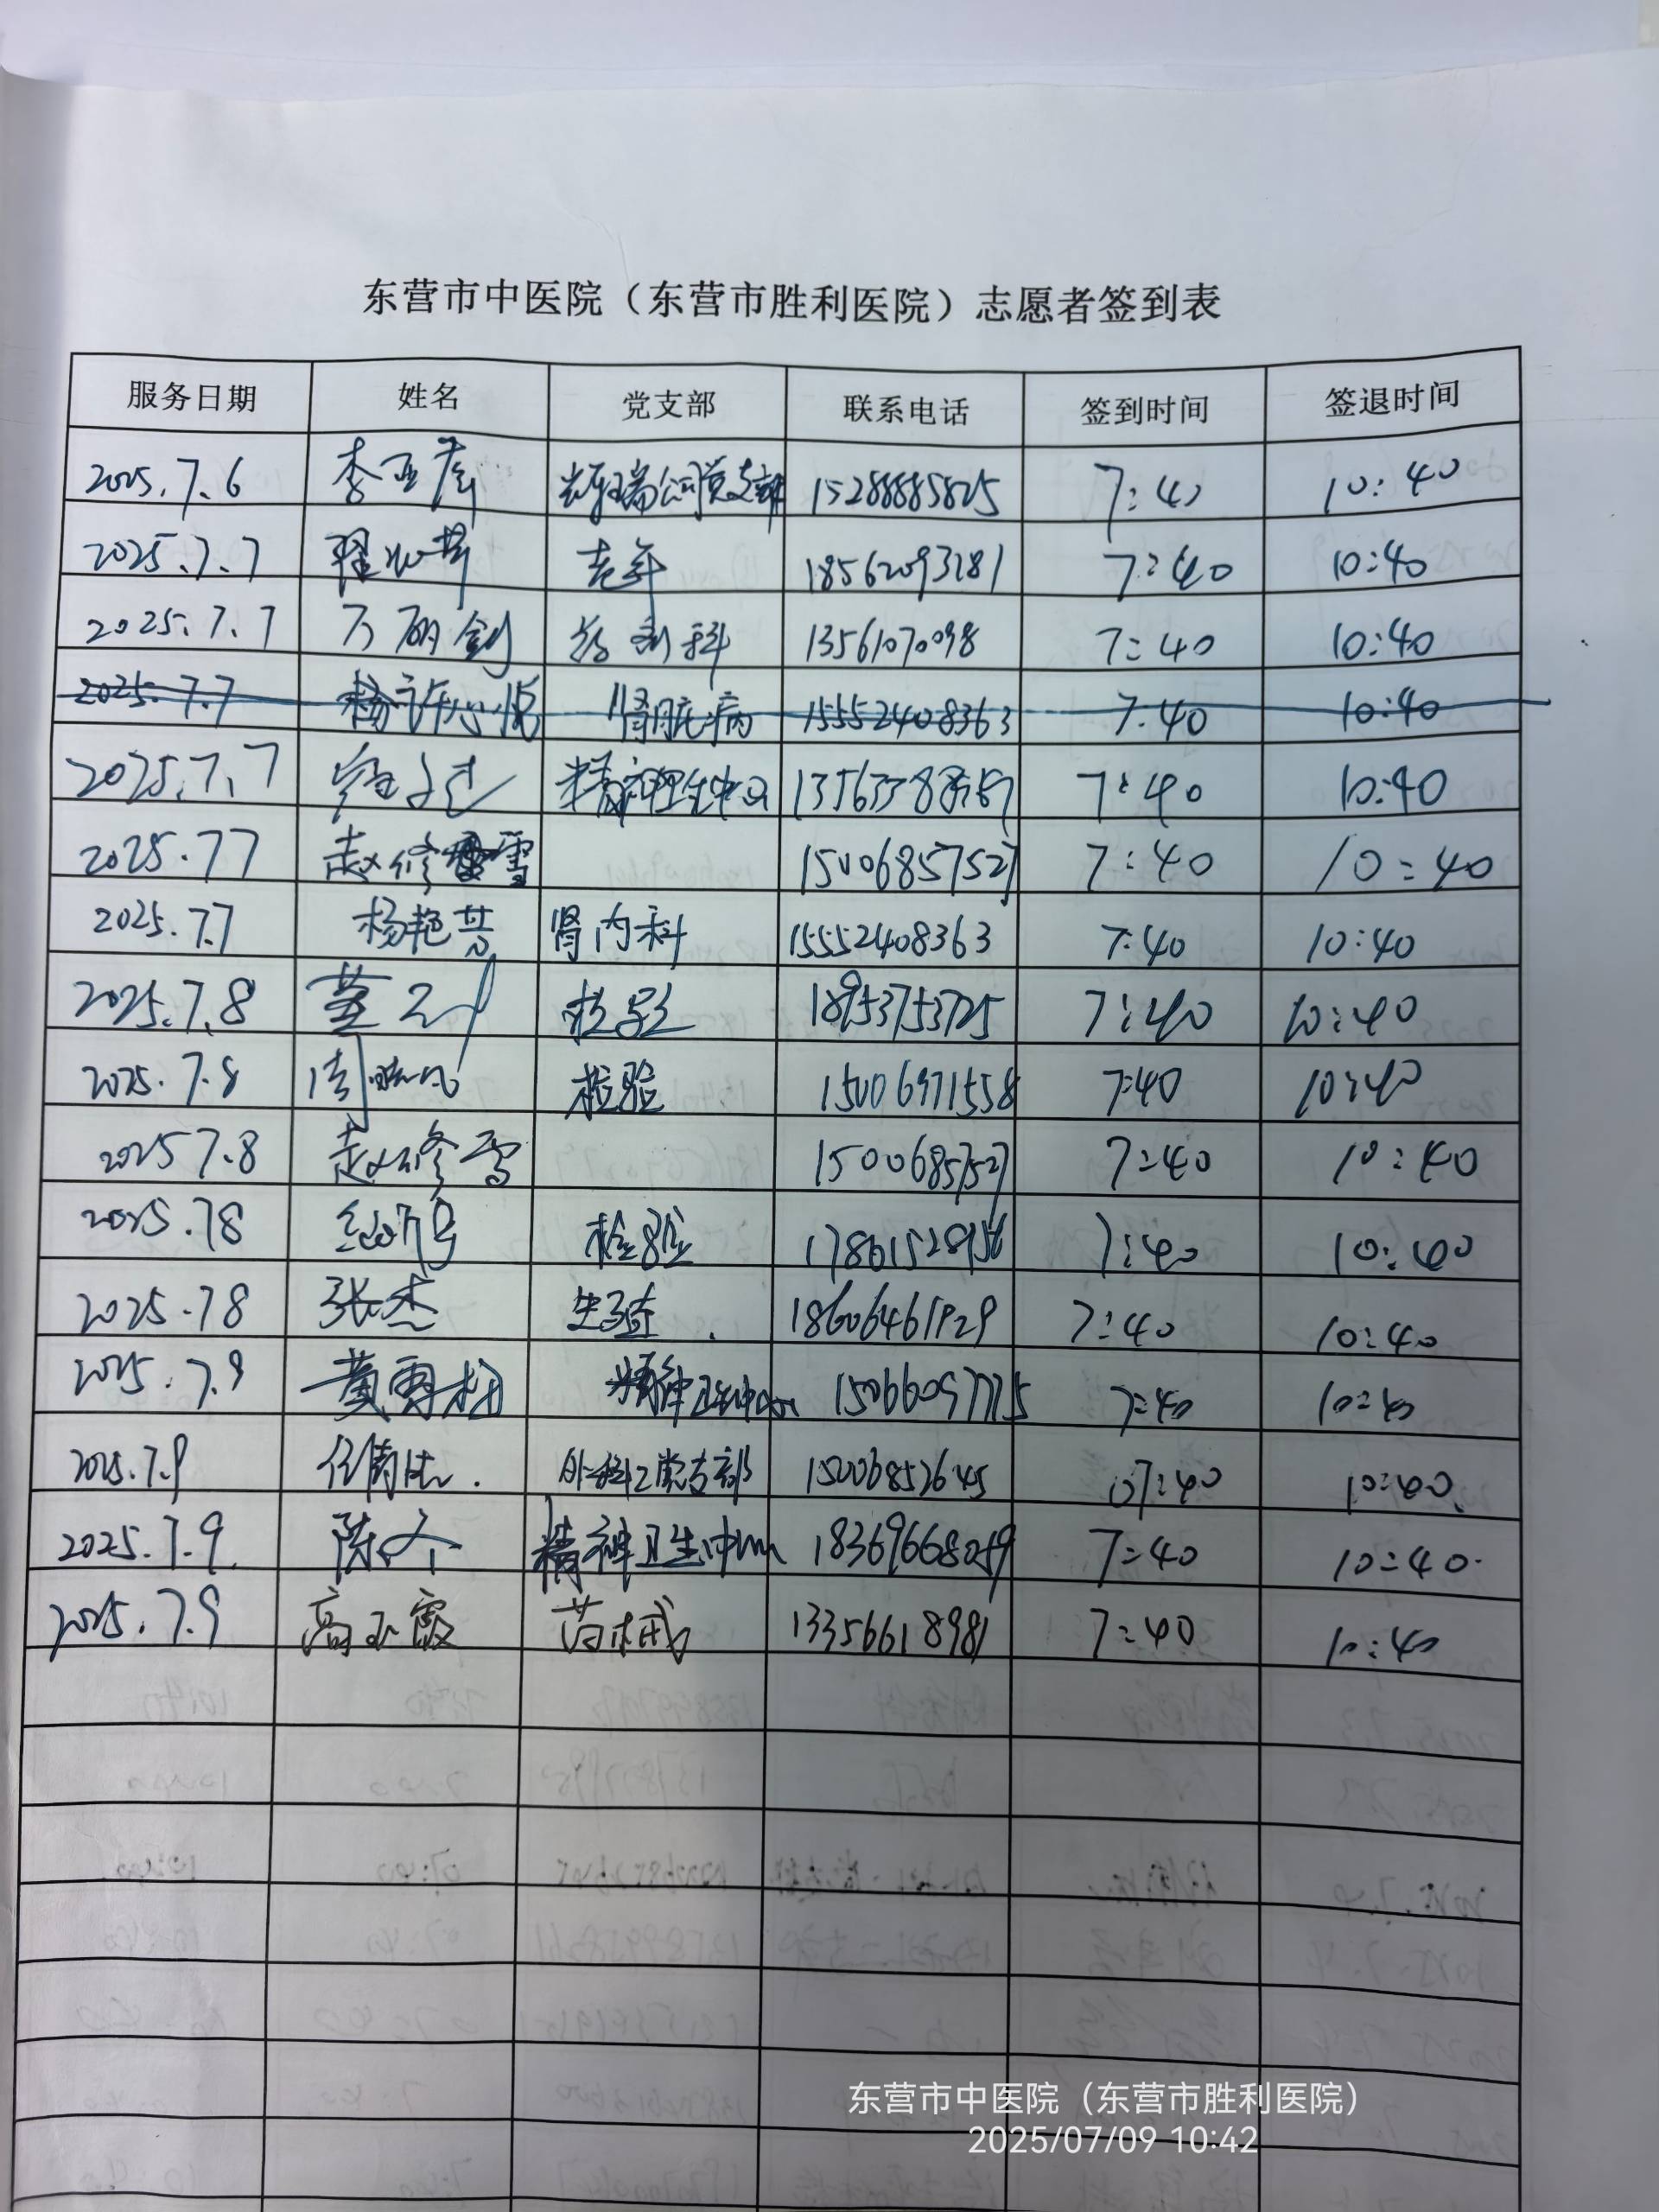 东营市中医院（东营市胜利医院）志愿者签到表
服务日期 姓名 党支部 联系电话 签到时间 签退时间
2025.7.6 李亚彦 辉瑞公司党支部 15288885825 7:40 10:40
2025.7.7 老年 18562093281 7:40 10:40
2025.7.7 万丽剑 药剂科 13561070098 7:40 10:40
2025.7.7 杨许心悦 肾脏病 15552408363 7:40 10:40
2025.7.7 精神卫生中心 7:40 10:40
2025.7.7 赵修雪 15006857527 7:40 10:40
2025.7.7 杨艳芬 肾内科 15552408363 7:40 10:40
2025.7.8 董 检验 18953753725 7:40 10:40
2025.7.8 周晓风 检验 15006971558 7:40 10:40
2025 7.8 赵修雪 15006857527 7:40 10:40
2025.7.8 检验 17861528956 7:40 10:40
2025.7.8 张杰 18606461929 7:40 10:40
2025.7.9 黄雪梅 精神卫生中心 15066097775 7:40 10:40
2025.7.9 任倩倩 外科2党支部 15006852645 07:40 10:40
2025.7.9. 精神卫生中心 18369668059 7:40 10:40
2025.7.9 高玉霞 药械 13356618981 7:40 10:40
东营市中医院（东营市胜利医院）
2025/07/09 10:42